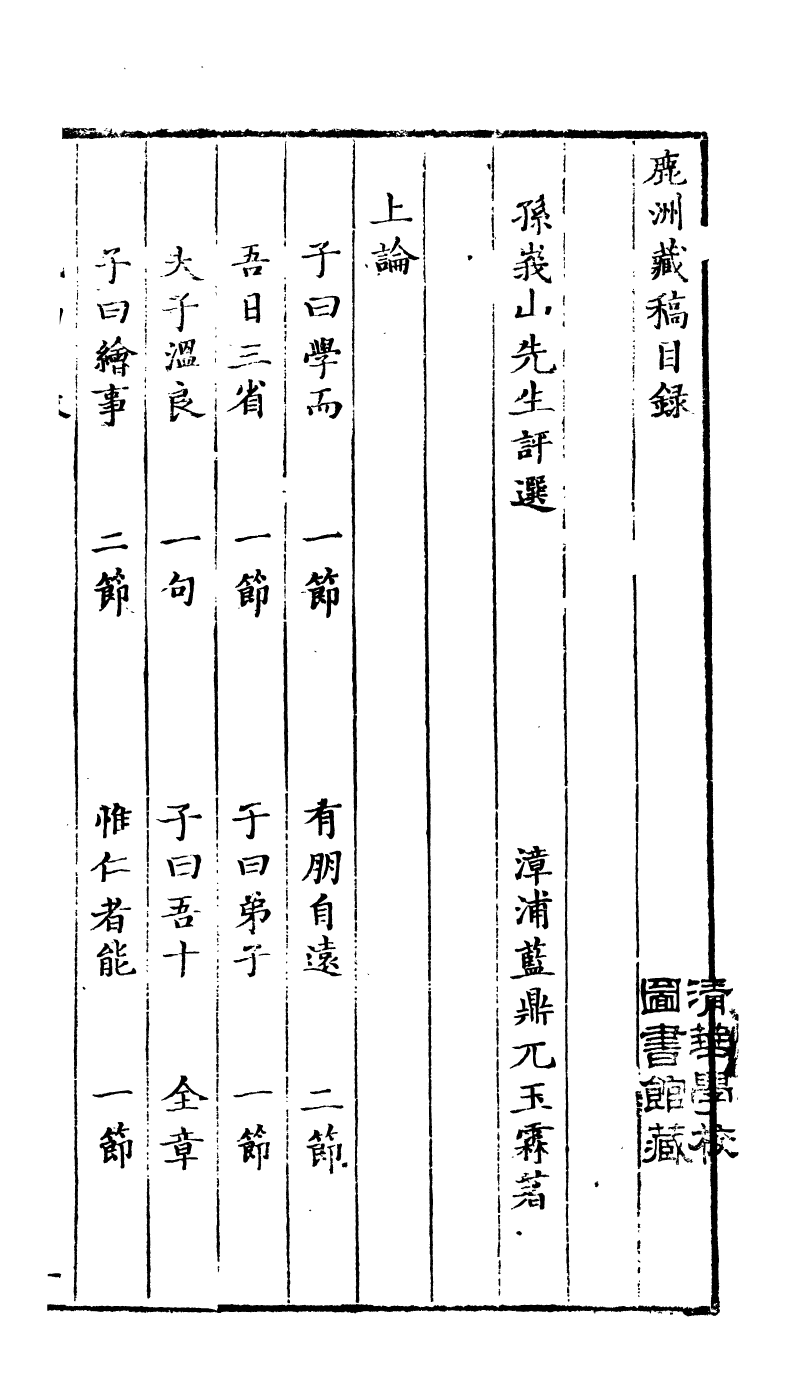 鹿洲藏稿目録
清華學校
圖書館藏
孫峩山先生評選　漳浦藍鼎元玉霖著
上論
子曰學而　一節　有朋自遠　二節
吾日三省　一節　子曰弟子　一節
夫子溫良　一句　子曰吾十　全章
子曰繪事　二節　惟仁者能　一節
一